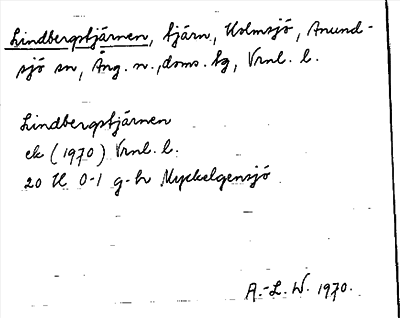 Lindbergstjärnen, tjärn, Holmsjö, Anund-
sjö sn, Ång. n., doms. hg, Vrnl. l.
Lindbergstjärnen
ek (1970) Vrnl. l.
20 H 0-1 g-h Myckelgensjö
A.-L. W. 1970.